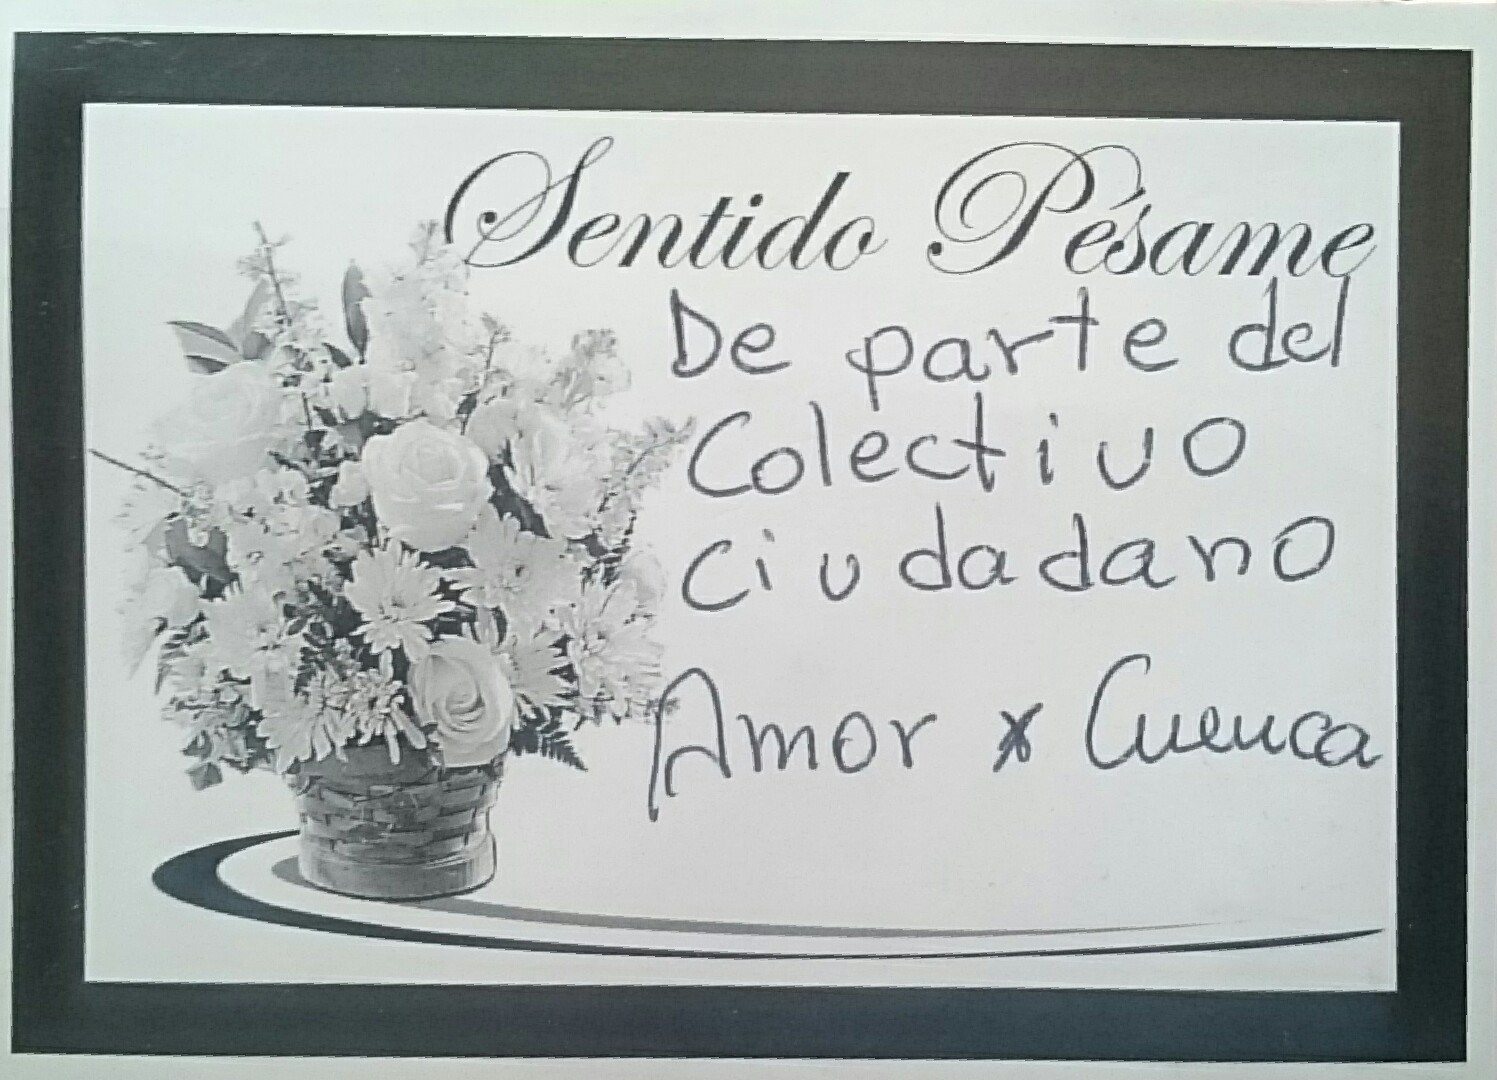 Sentido Pésame
De parte del
Colectivo
ciudadano
Amor x Cuenca